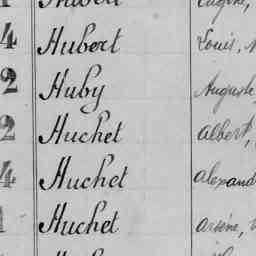 4 Hubert Louis,
2 Huby Auguste
2 Huchet Albert,
4 Huchet Alexand
1 Huchet Arsène,